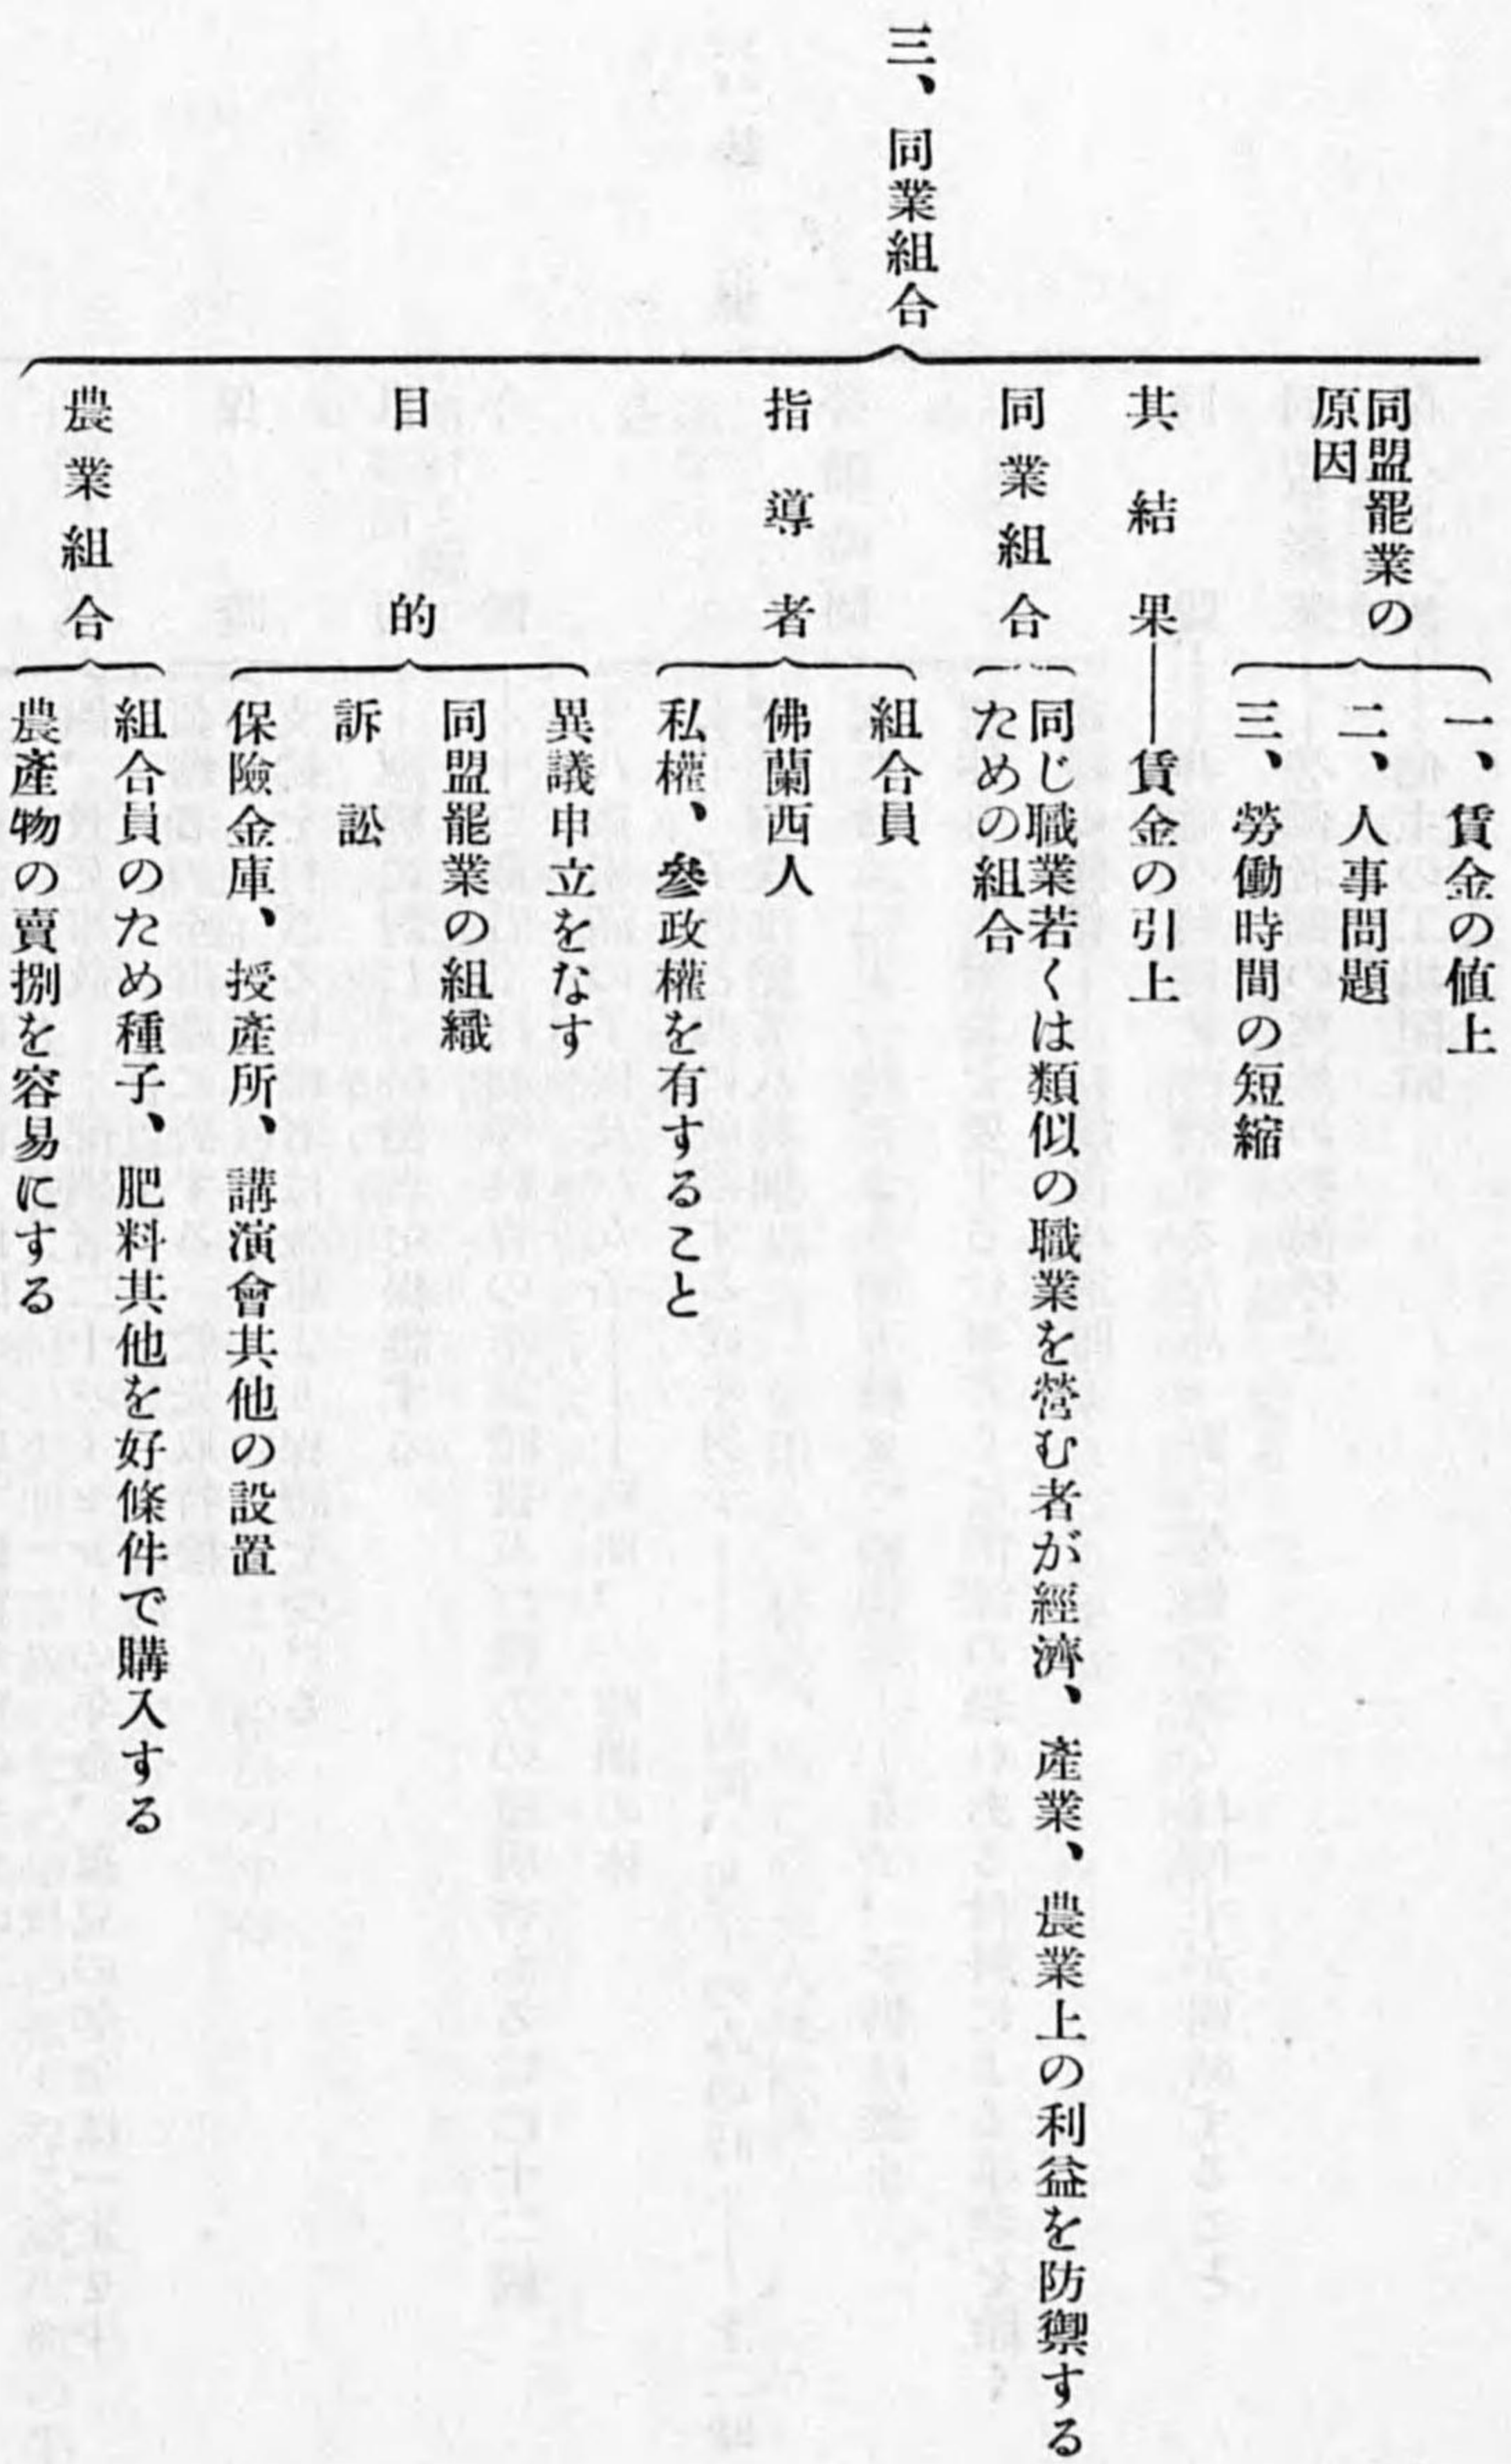 三、同業組合
同盟罷業の
原因
一、賃金の値上
二、人事問題
三、勞働時間の短縮
其結果——賃金の引上
同業組合
同じ職業若くは類似の職業を營む者が經濟、產業、農業上の利益を防禦する
ための組合
指導者
組合員
佛蘭西人
私權、參政權を有すること
目的
異議申立をなす
同盟罷業の組織
訴訟
保險金庫、授產所、講演會其他の設置
農業組合
組合員のため種子、肥料其他を好條件で購入する
農產物の賣捌を容易にする